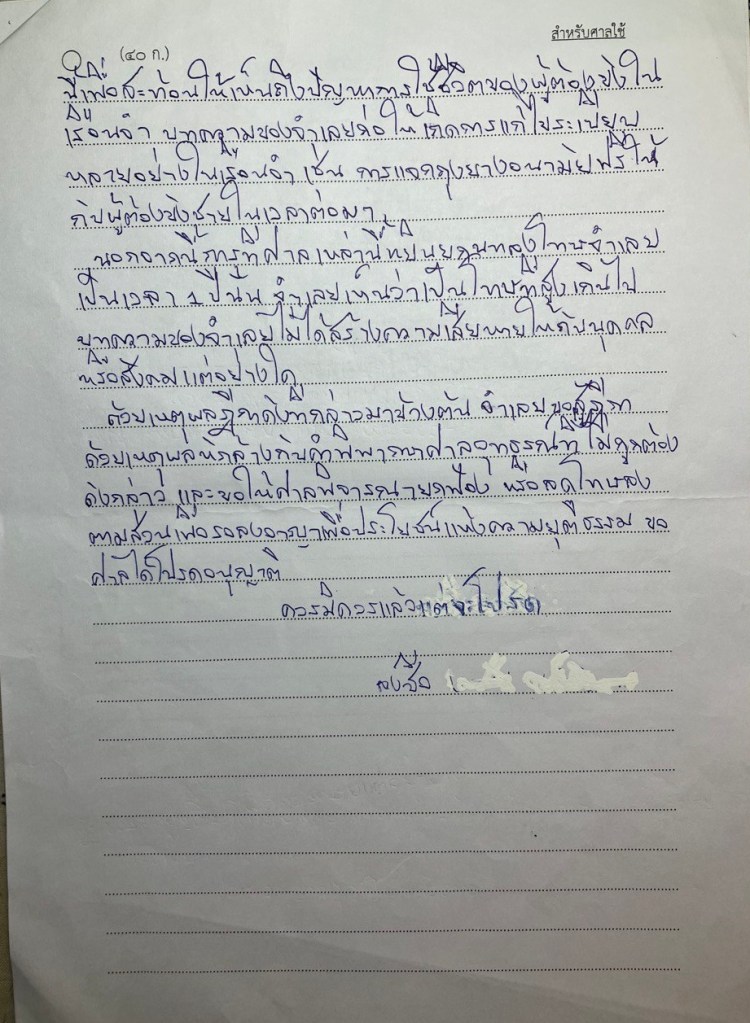 สำหรับศาลใช้
(๔๐ ก.)
นี้เพื่อสะท้อนให้เห็นถึงปัญหาการใช้ชีวิตของผู้ต้องขังใน
เรือนจำ บทความของจำเลยก่อให้เกิดการแก้ไขระเบียบ
หลายอย่างในเรือนจำ เช่น การแจกถุงยางอนามัยฟรีให้
กับผู้ต้องขังชายในเวลาต่อมา
นอกจากนี้ การที่ศาลเหล่านี้ กำหนดโทษจำเลย
เป็นเวลา 1 ปีนั้น จำเลยเห็นว่าเป็นโทษที่สูงเกินไป
บทความของจำเลยไม่ได้สร้างความเสียหายให้กับบุคคล
หรือสังคมแต่อย่างใด
ด้วยเหตุผลฎีกาดังที่กล่าวมาข้างต้น จำเลยขอสู้ฎีกา
ด้วยเหตุผลหักล้างกับคำพิพากษาศาลอุทธรณ์ที่ไม่ถูกต้อง
ดังกล่าว และขอให้ศาลพิจารณายกฟ้อง หรือลดโทษลง
ตามส่วนเพื่อรอลงอาญาเพื่อประโยชน์แห่งความยุติธรรม ขอ
ศาลได้โปรดอนุญาต
ควรมิควรแล้วแต่จะโปรด
ลงชื่อ